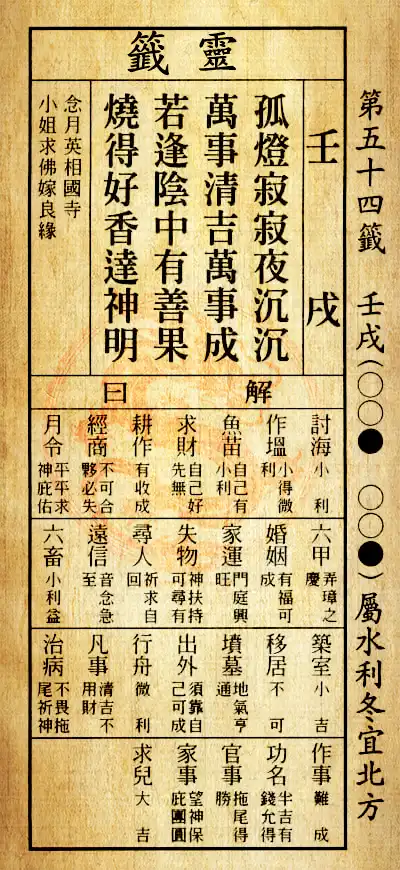 第五十四籤 壬戌(○○● ○○●)屬水利冬宜北方
靈籤
壬戌
孤燈寂寂夜沉沉
萬事清吉萬事成
若逢陰中有善果
燒得好香達神明
念月英相國寺
小姐求佛嫁良緣
解曰
討海 小利
作塭 小得微利
魚苗 自己有小利
求財 自己好先無
耕作 有收成
經商 不可合夥必失
月令 平平求神庇佑
六甲 弄璋之慶
婚姻 有福可成
家運 門庭興旺
失物 神扶持可尋有
尋人 祈求自回
遠信 音念急至
六畜 小利益
築室 小吉
移居 不可
墳墓 地氣亨通
出外 須靠自己可成
行舟 微利
凡事 清吉不用財
治病 不畏拖尾祈神
作事 難成
功名 半吉有錢允得
官事 拖尾得勝
家事 望神保庇團圓
求兒 大吉